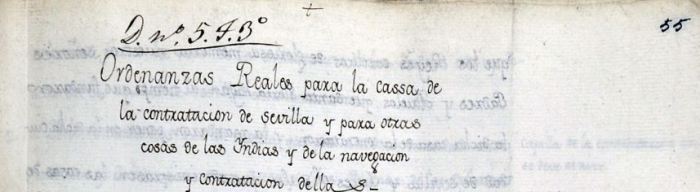 55
D. nº. 5. J. 3º
Ordenanzas Reales para la cassa de
la contratacion de sevilla y para otras
cosas de las Indias y de la navegacion
y contratacion della s